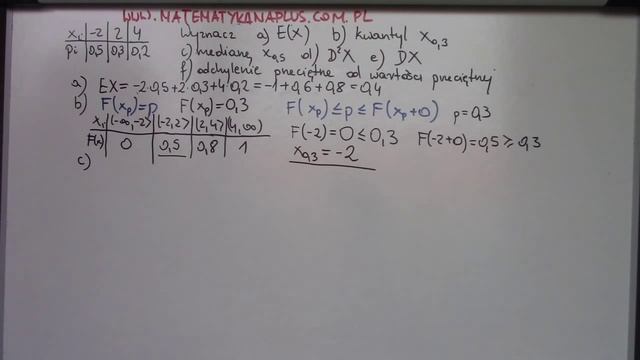 www.MATEMATYKANAPLUS.COM.PL
xi | -2 | 2 | 4
pi | 0,5 | 0,3 | 0,2
Wyznacz a) E(X) b) kwantyl x0,3
c) medianę x0,5 d) D²X e) DX
f) odchylenie przeciętne od wartości przeciętnej
a) EX = -2·0,5+2·0,3+4·0,2 = -1+0,6+0,8 = 0,4
b) F(xp)=p F(xp)=0,3 F(xp) ≤ p ≤ F(xp+0) p=0,3
xi | (-∞,-2> | (-2,2> | (2,4> | (4,∞)
F(x) | 0 | 0,5 | 0,8 | 1
F(-2)=0 ≤ 0,3 F(-2+0)=0,5 ≥ 0,3
x0,3 = -2
c)